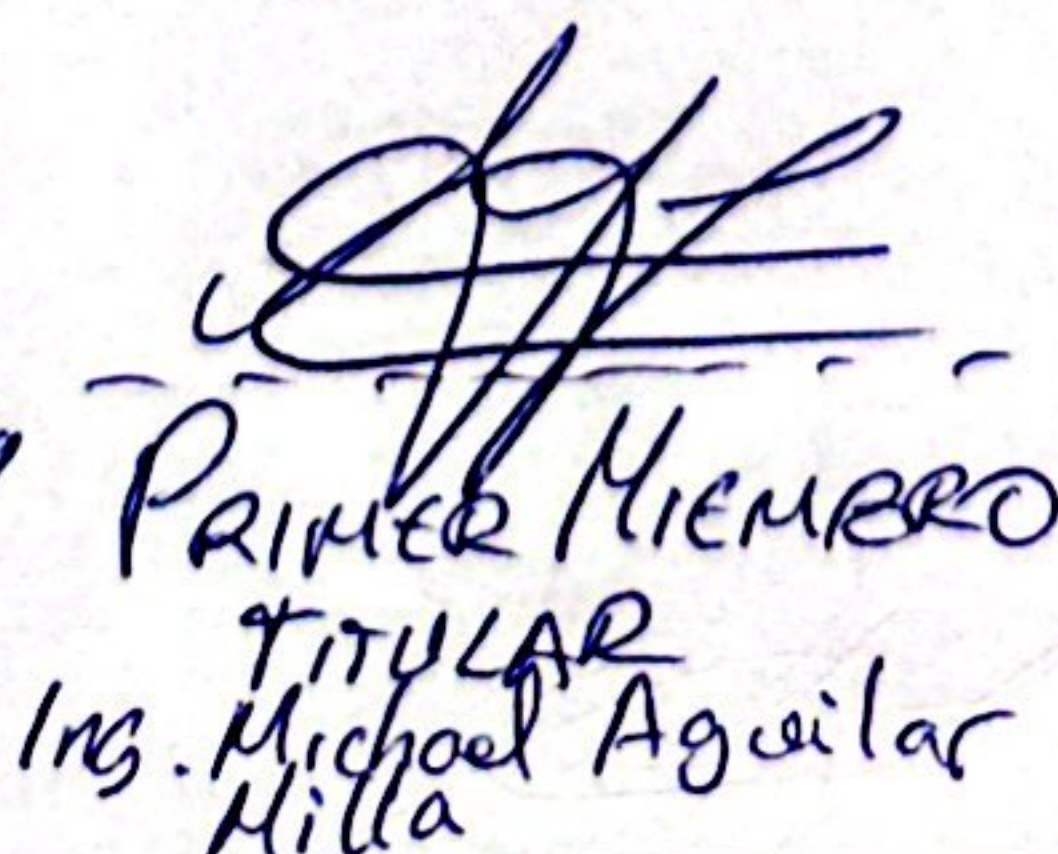 PRIMER MIEMBRO
TITULAR
Ing. Michael Aguilar
Milla